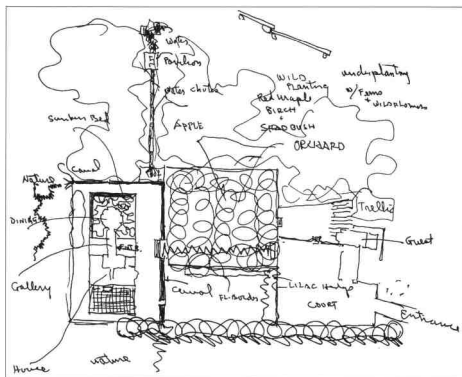 Water
Pavilion
Water chute
Sunken Bed
APPLE
WILD
Planting
Red maple
BIRCH
+
SHADBUSH
ORCHARD
underplanting
w/ Ferns
+ wildflowers
Canal
Nature
DINING
Gallery
House
Nature
Canal
LILAC Hedge
COURT
Trellis
Guest
Entrance